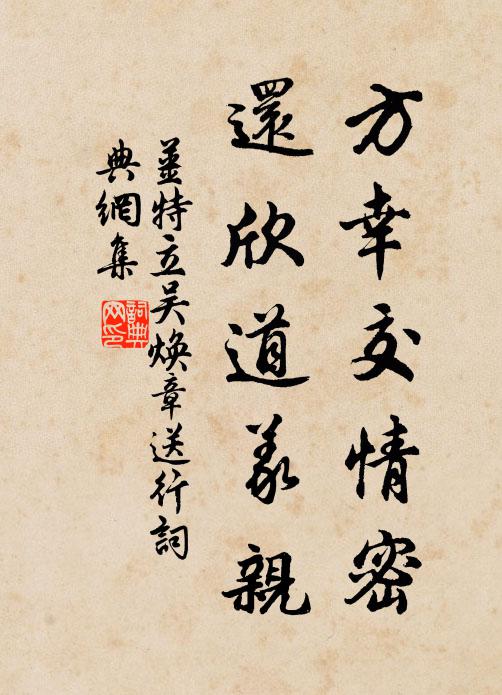 方幸交情密
還欣道義親
姜特立吴煥章送行詞
典網集
詞典
网印